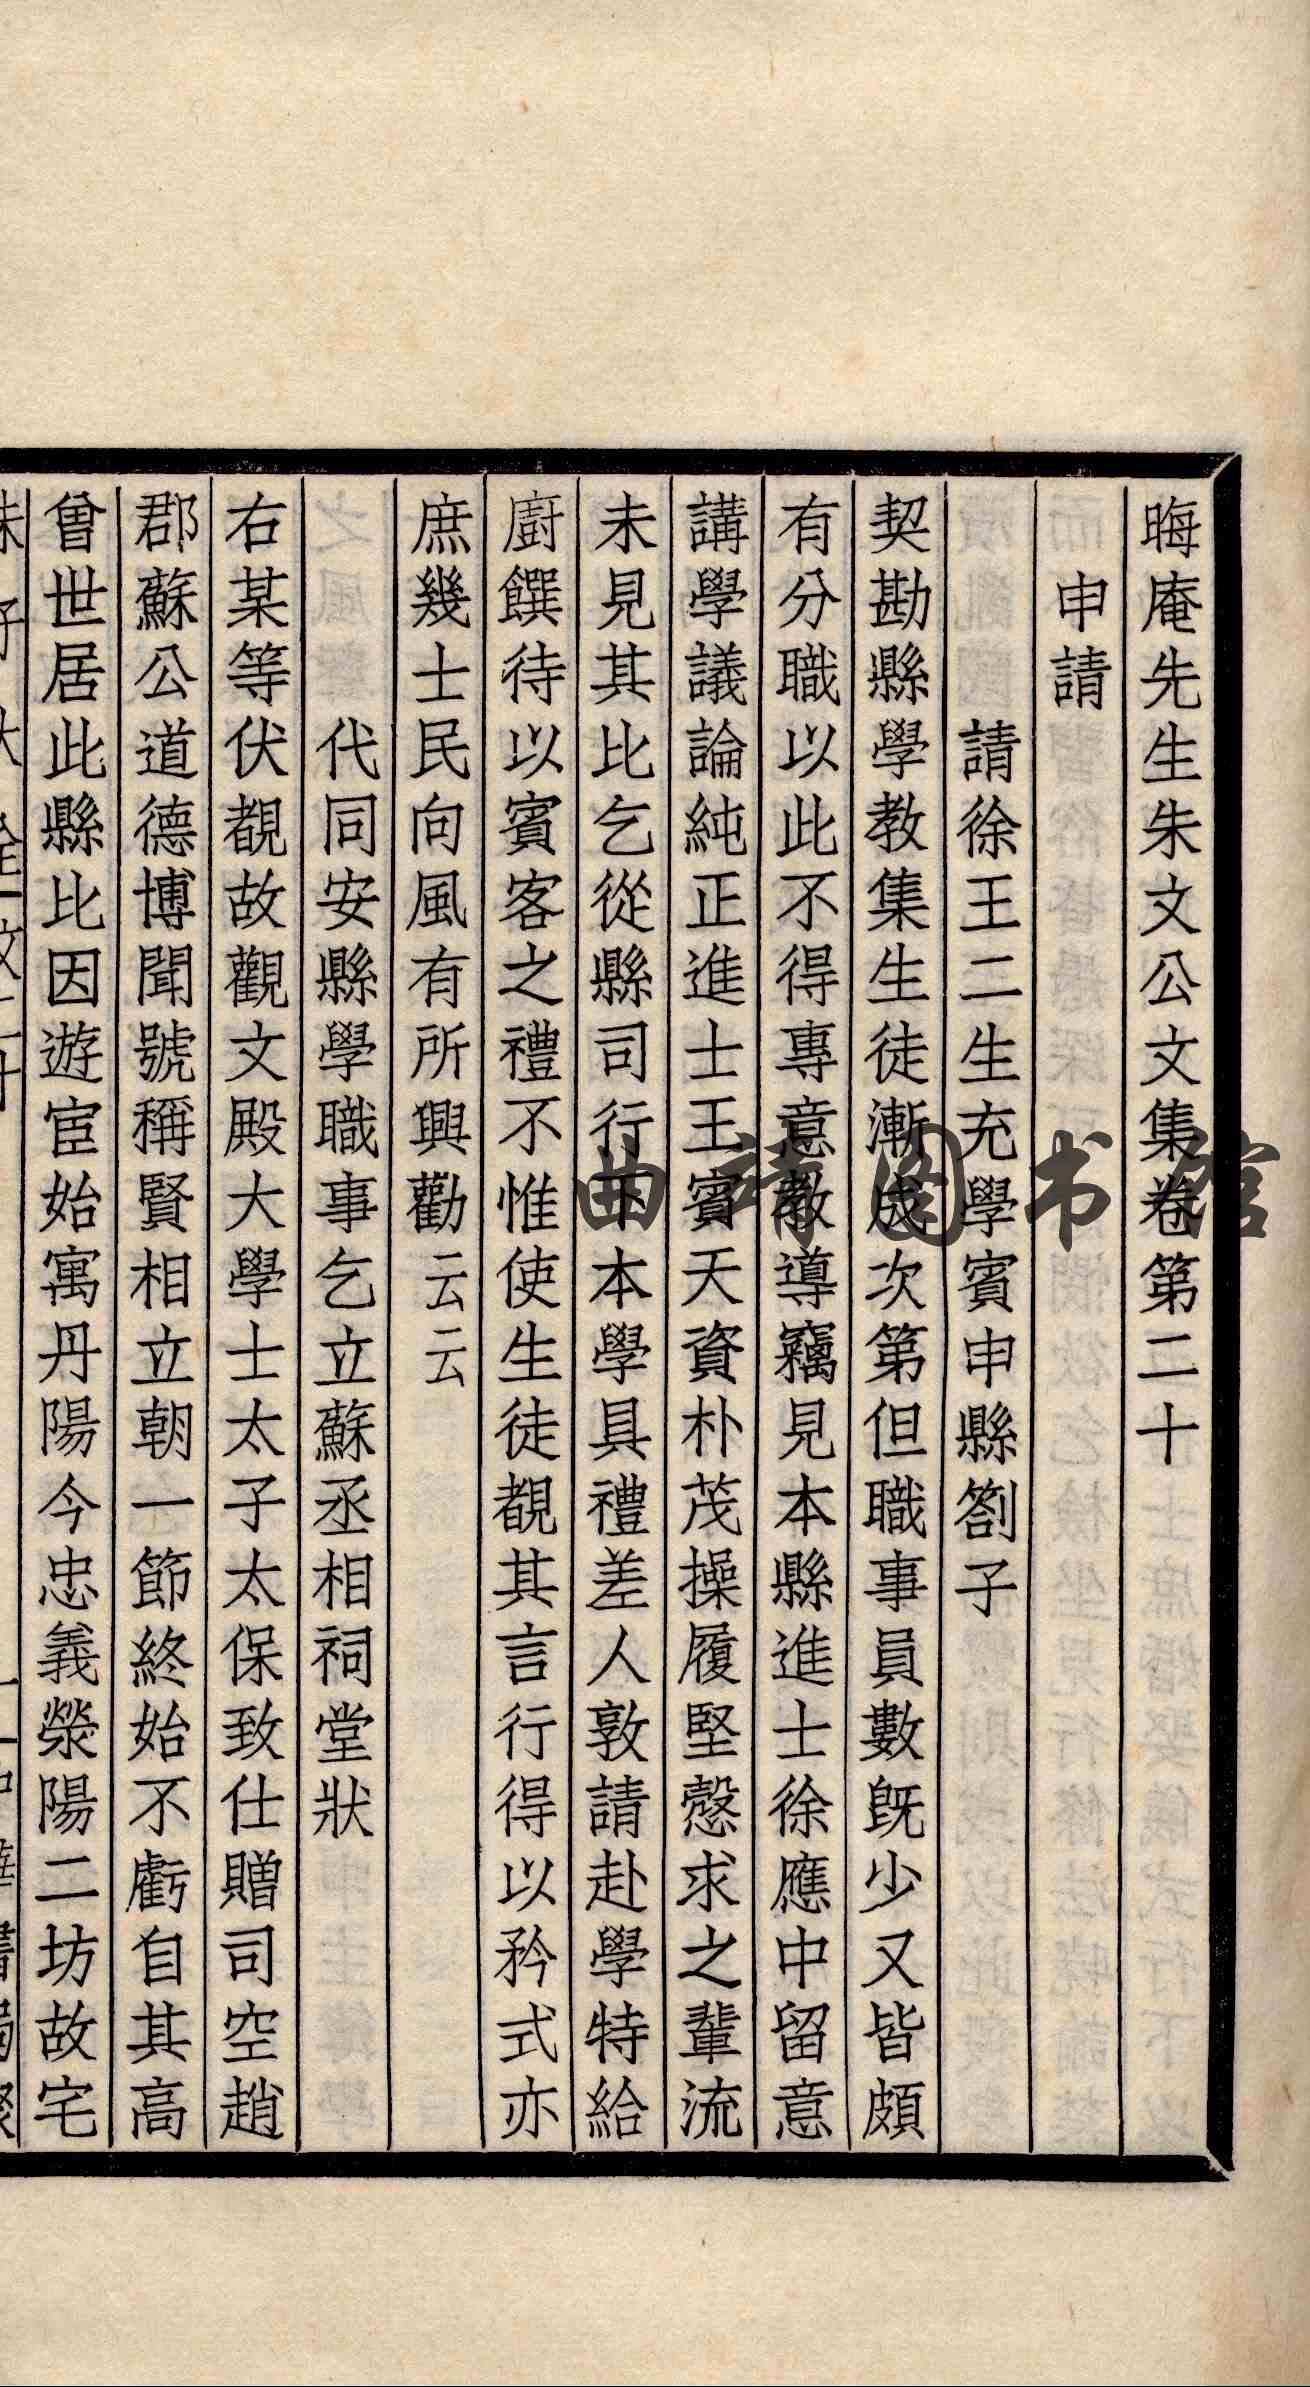 晦庵先生朱文公文集卷第二十
申請
請徐王二生充學賓申縣劄子
契勘縣學教集生徒漸成次第但職事員數既少又皆頗
有分職以此不得專意教導竊見本縣進士徐應中留意
講學議論純正進士王賓天資朴茂操履堅慤求之輩流
未見其比乞從縣司行下本學具禮差人敦請赴學特給
廚饌待以賓客之禮不惟使生徒覩其言行得以矜式亦
庶幾士民向風有所興勸云云
代同安縣學職事乞立蘇丞相祠堂狀
右某等伏覩故觀文殿大學士太子太保致仕贈司空趙
郡蘇公道德博聞號稱賢相立朝一節終始不虧自其高
曾世居此縣比因遊宦始寓丹陽今忠義滎陽二坊故宅
曲靖图书馆